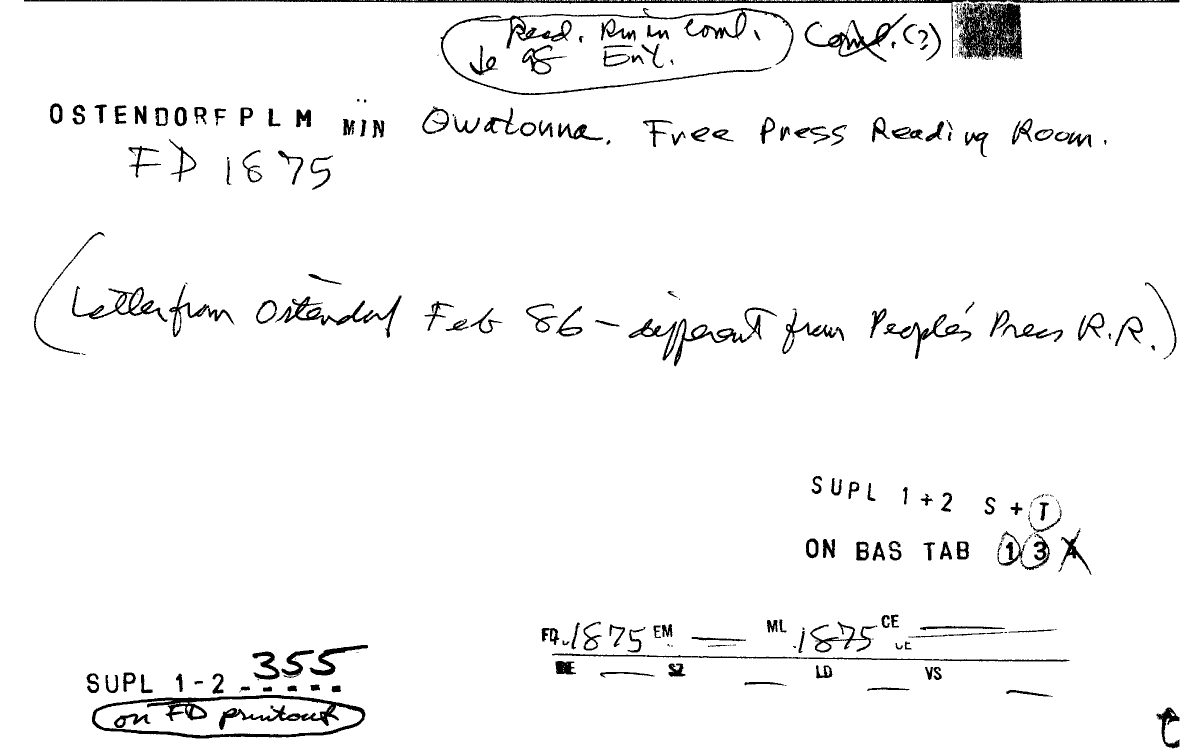 Read. Rm in Coml. Coml. (?)
98 Ent.
OSTENDORF P L M MIN Owatonna. Free Press Reading Room.
FD 1875
(Letter from Ostendorf Feb 86 – different from People's Press R.R.)
SUPL 1+2 S + T
ON BAS TAB 1 3 4
FD. 1875 EM — ML 1875 CE —
DE — SZ — LD — VS —
SUPL 1-2 355
on FD printout
t